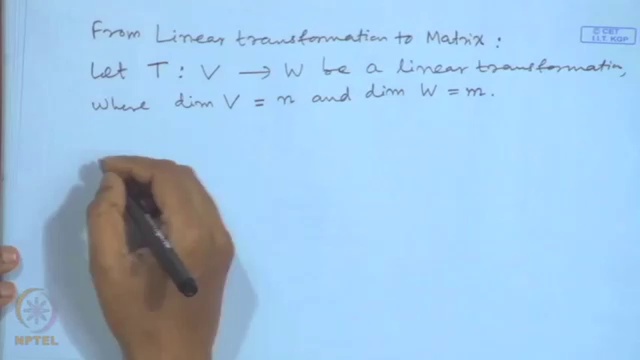 From Linear transformation to Matrix:
Let T: V → W be a linear transformation,
where dim V = n and dim W = m.
© CET
I.I.T. KGP
NPTEL